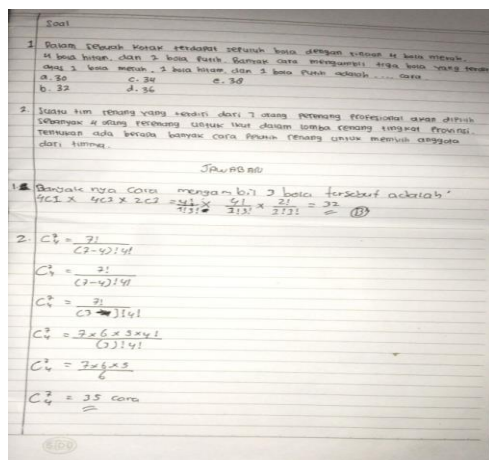 Soal
1 Dalam sebuah kotak terdapat sepuluh bola dengan rincian 4 bola merah,
4 bola hitam, dan 2 bola putih. Banyak cara mengambil tiga bola yang terdiri
atas 1 bola merah, 1 bola hitam, dan 1 bola putih adalah .... cara
a. 30 c. 34 e. 38
b. 32 d. 36
2. Suatu tim renang yang terdiri dari 7 orang perenang profesional akan dipilih
sebanyak 4 orang perenang untuk ikut dalam lomba renang tingkat Provinsi.
Tentukan ada berapa banyak cara pelatih renang untuk memilih anggota
dari timnya.
JAWABAN
1. Banyak nya cara mengambil 3 bola tersebut adalah
4C1 × 4C1 × 2C1 = 4!/1!3! × 4!/1!3! × 2!/1!1! = 32 (B)
2. C⁷₄ = 7!/(7-4)!4!
C⁷₄ = 7!/(7-4)!4!
C⁷₄ = 7!/(3)!4!
C⁷₄ = 7×6×5×4!/(3)!4!
C⁷₄ = 7×6×5/6
C⁷₄ = 35 cara